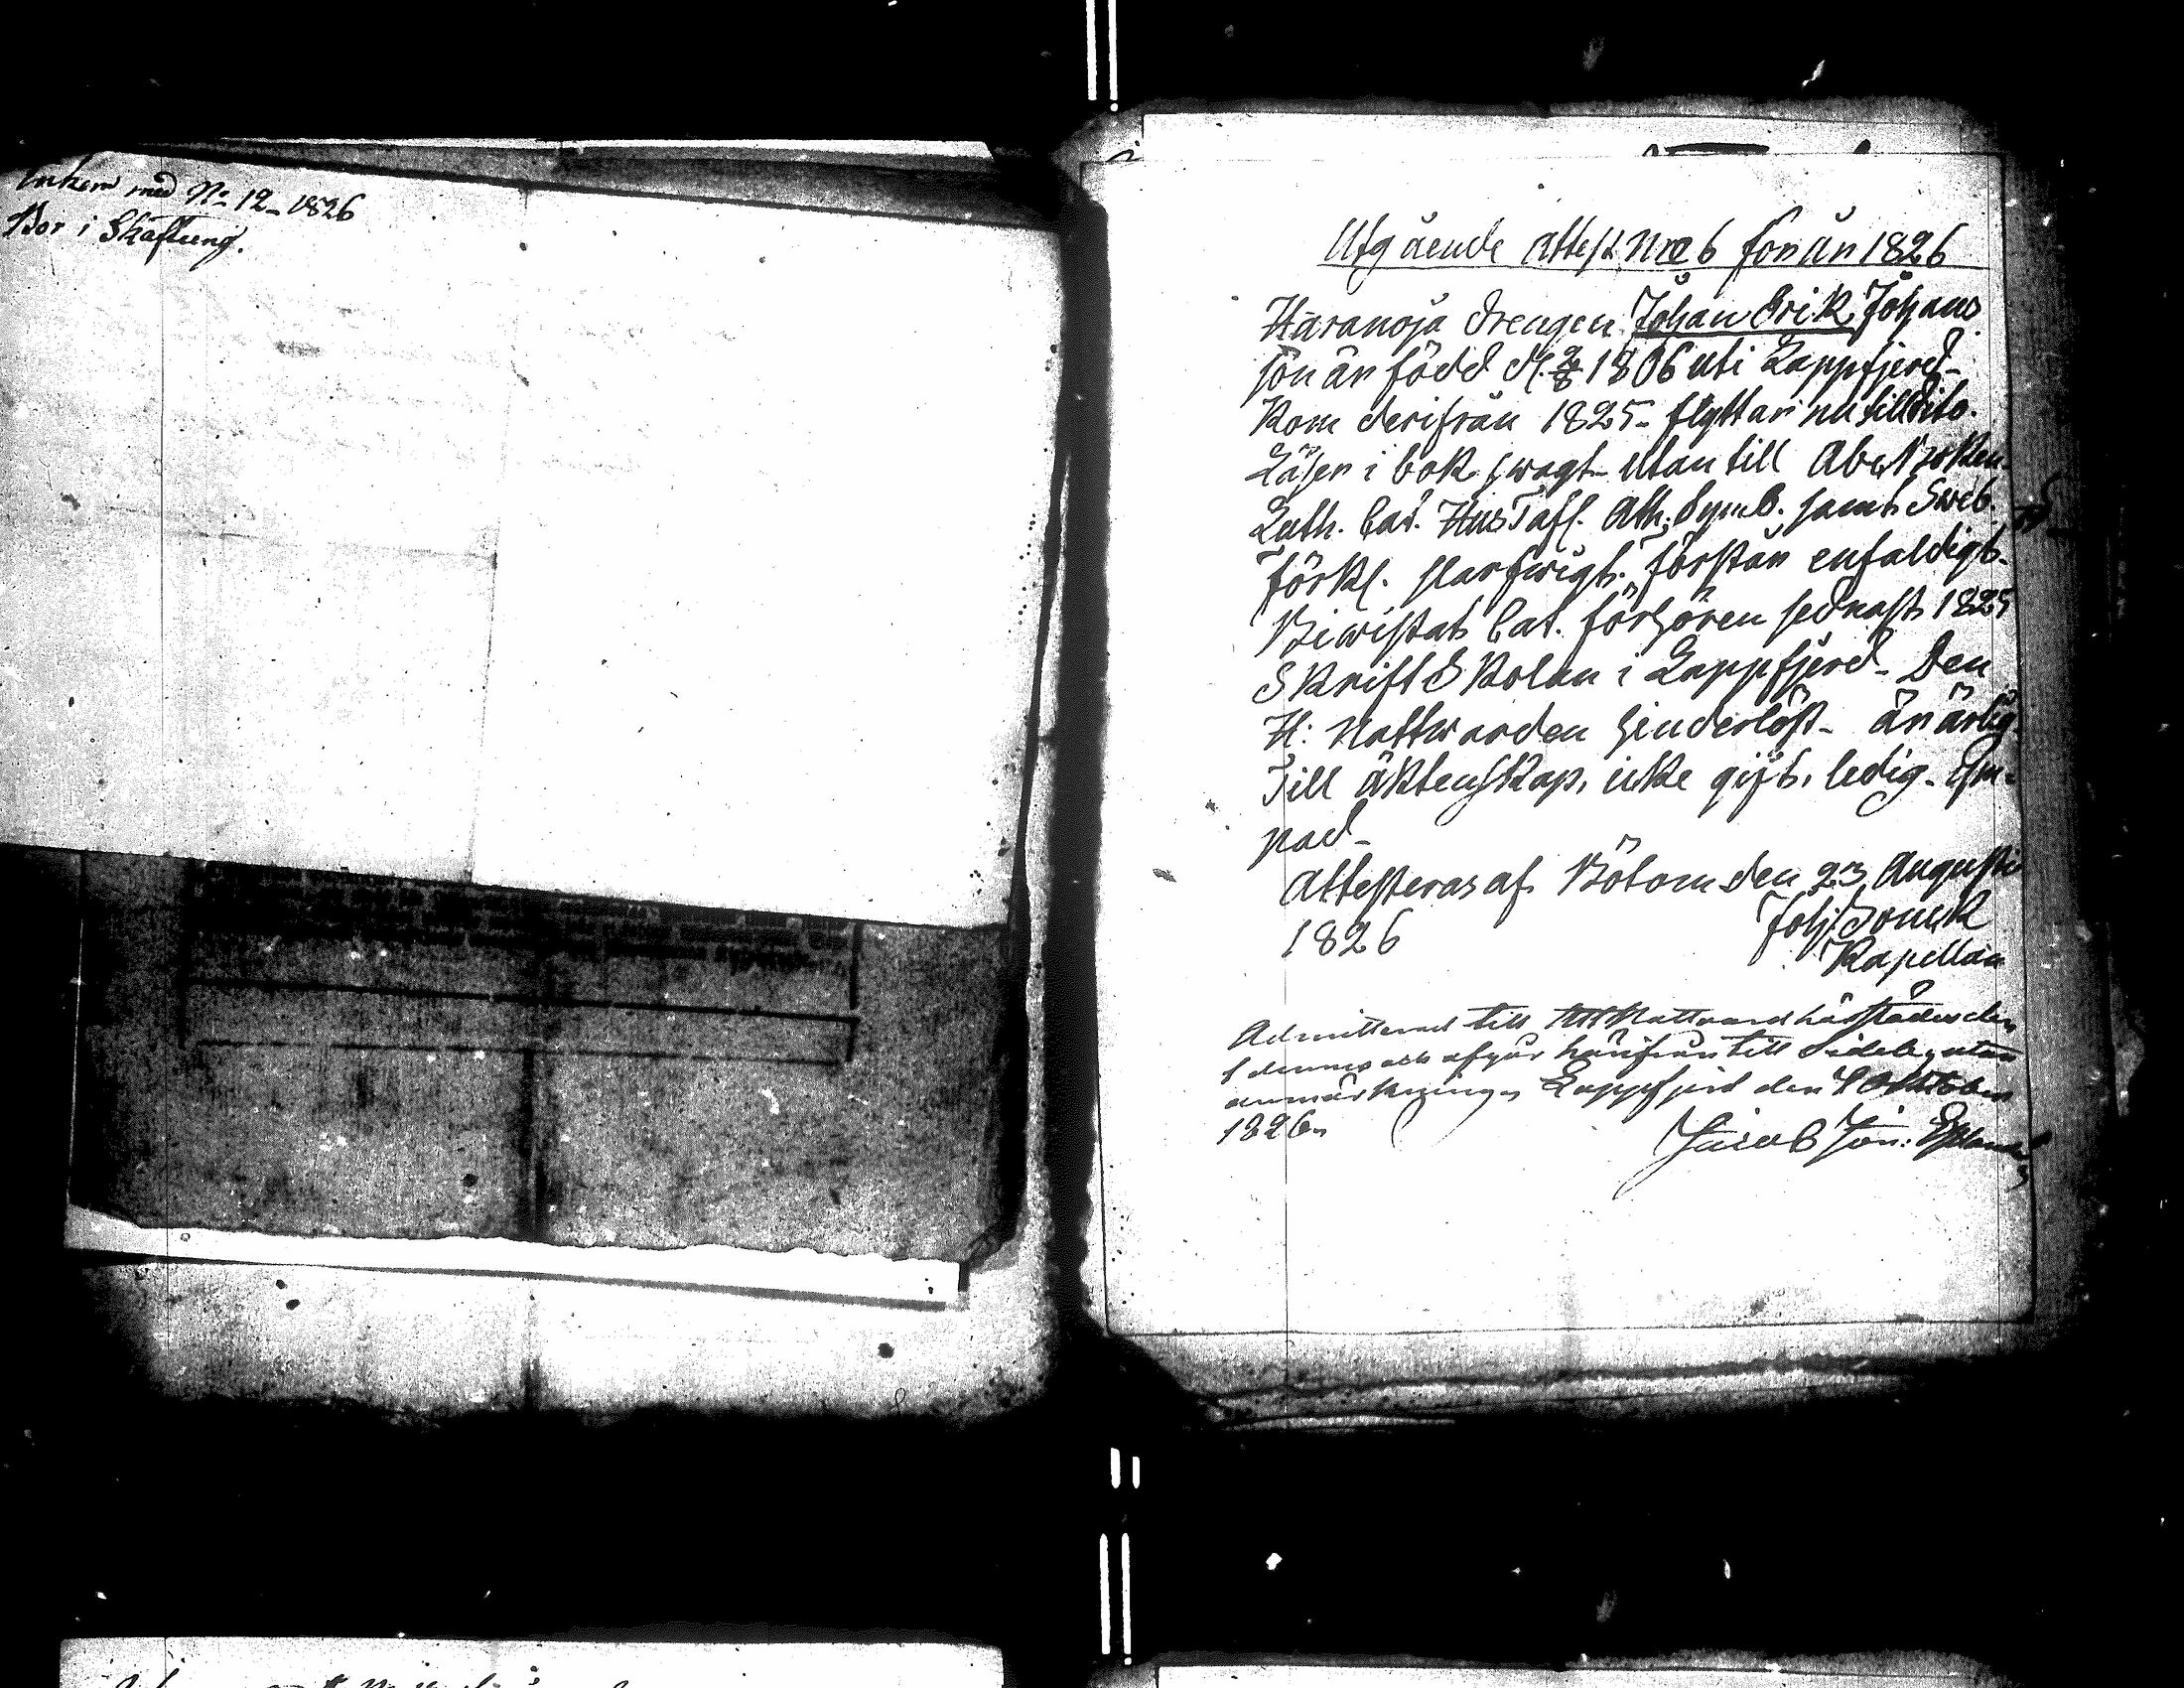 Inkom med No 12 - 1826
Bor i Skaftung.
Utgående attest Nro 6 för år 1826
Häranoja drengen Johan Erik Johans
son är född d. 2/8 1806 uti Lappfjerd -
Kom derifrån 1825 - flyttar nu till dito.
Läser i bok swagt - Utan till Abc boken
Luth. Cat. Hus Tafl. Ath. Symb. samt Sweb.
förkl. slarfwigt. förstår enfaldigt.
Biwistat Cat. förhören sednast 1825
Skrift Skolan i Lappfjerd - Den
H: Nattwarden hinderlöst - är ärlig
Till äktenskap, icke gift, ledig - Ym-
pad -
Attesteras af Bötom den 23 Augusti
1826
Joh:
Kapellan
Admitterad till Nattward härstädes den
denna och afgår härifrån till Sideby utan
anmärkning, Lappfjerd den 8 Oktober
1826.
Jacob Jon: